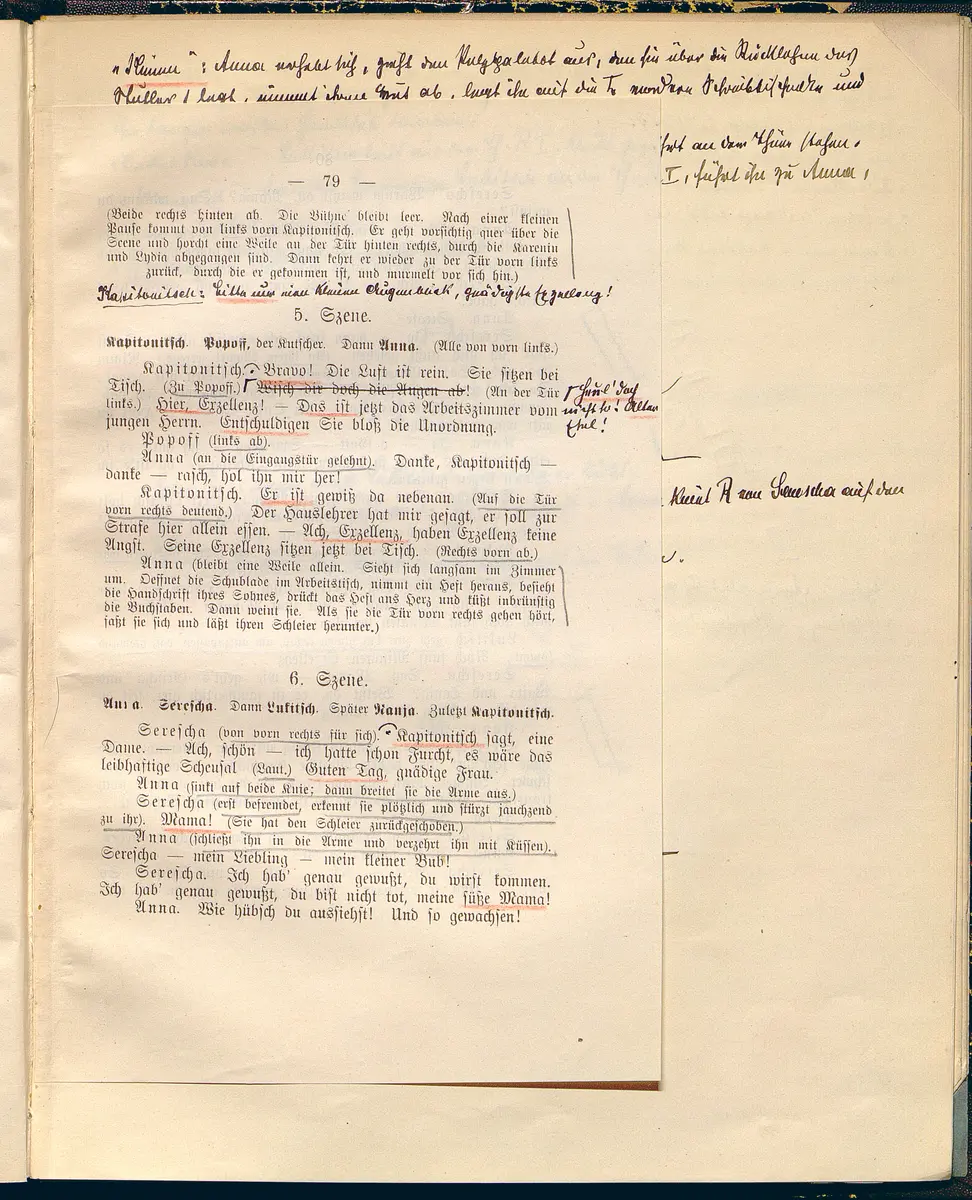 ": Anna erhebt sich, zieht den Pelzpaletot aus, den sie über die Rücklehne des
1 legt, nimmt ihren Hut ab, legt ihn auf die vordere Schreibtischecke und
an den Thür stehen.
I, führt ihn zu Anna,
— 79 —
(Beide rechts hinten ab. Die Bühne bleibt leer. Nach einer kleinen
Pause kommt von links vorn Kapitonitsch. Er geht vorsichtig quer über die
Scene und horcht eine Weile an der Tür hinten rechts, durch die Karenin
und Lydia abgegangen sind. Dann kehrt er wieder zu der Tür vorn links
zurück, durch die er gekommen ist, und murmelt vor sich hin.)
Kapitonitsch: Bitte nur einen kleinen Augenblick, gnädigste Exzellenz!
5. Szene.
Kapitonitsch. Popoff, der Kutscher. Dann Anna. (Alle von vorn links.)
Kapitonitsch. Bravo! Die Luft ist rein. Sie sitzen bei
Tisch. (Zu Popoff.) Wisch dir doch die Augen ab! (An der Tür
Heul' doch
links.) Hier, Exzellenz! — Das ist jetzt das Arbeitszimmer vom
nicht so! Alter
jungen Herrn. Entschuldigen Sie bloß die Unordnung.
Esel!
Popoff (links ab).
Anna (an die Eingangstür gelehnt). Danke, Kapitonitsch —
danke — rasch, hol ihn mir her!
Kapitonitsch. Er ist gewiß da nebenan. (Auf die Tür
vorn rechts deutend.) Der Hauslehrer hat mir gesagt, er soll zur
kniet R von Serescha auf den
Strafe hier allein essen. — Ach, Exzellenz, haben Exzellenz keine
Angst. Seine Exzellenz sitzen jetzt bei Tisch. (Rechts vorn ab.)
Anna (bleibt eine Weile allein. Sieht sich langsam im Zimmer
um. Oeffnet die Schublade im Arbeitstisch, nimmt ein Heft heraus, besieht
die Handschrift ihres Sohnes, drückt das Heft ans Herz und küßt inbrünstig
die Buchstaben. Dann weint sie. Als sie die Tür vorn rechts gehen hört,
faßt sie sich und läßt ihren Schleier herunter.)
6. Szene.
Anna. Serescha. Dann Lukitsch. Später Nanja. Zuletzt Kapitonitsch.
Serescha (von vorn rechts für sich). Kapitonitsch sagt, eine
Dame. — Ach, schön — ich hatte schon Furcht, es wäre das
leibhaftige Scheusal (Laut.) Guten Tag, gnädige Frau.
Anna (sinkt auf beide Knie; dann breitet sie die Arme aus.)
Serescha (erst befremdet, erkennt sie plötzlich und stürzt jauchzend
zu ihr). Mama! (Sie hat den Schleier zurückgeschoben.)
Anna (schließt ihn in die Arme und verzehrt ihn mit Küssen).
Serescha — mein Liebling — mein kleiner Bub!
Serescha. Ich hab' genau gewußt, du wirst kommen.
Ich hab' genau gewußt, du bist nicht tot, meine süße Mama!
Anna. Wie hübsch du aussiehst! Und so gewachsen!